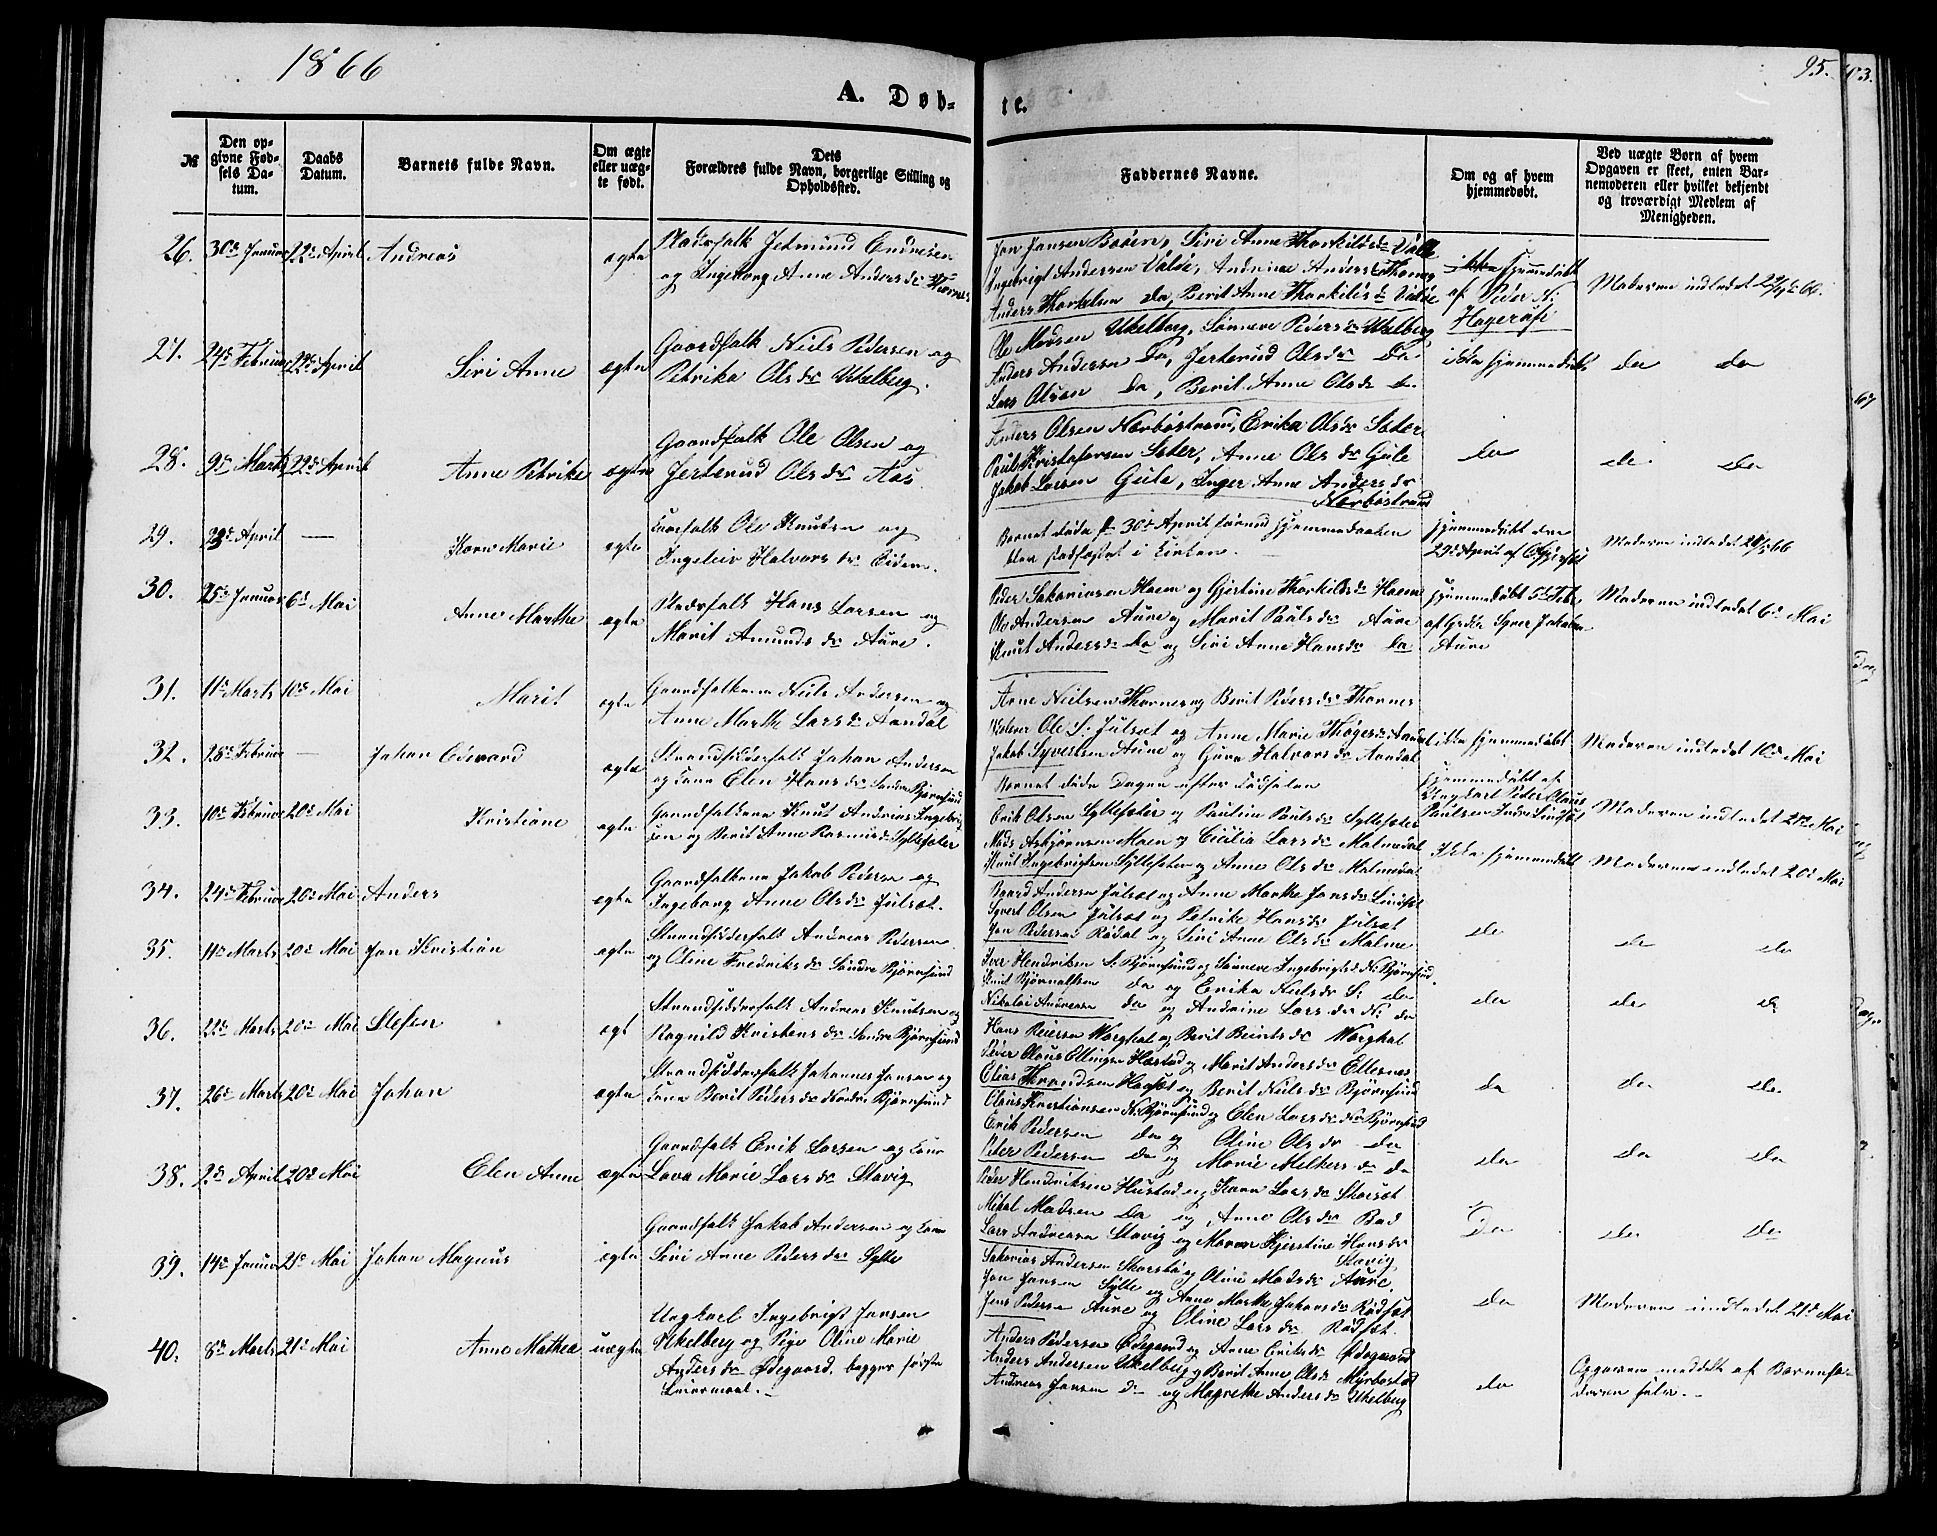 1866
A. Døb-
te.
95.
№
Den op-
givne Fød-
sels Da-
tum.
Daabs
Datum.
Barnets fulde Navn.
Om ægte
eller uæg-
te født.
Dets
Forældres fulde Navn, borgerlige Stilling og
Opholdssted.
Faddernes Navne.
Om og af hvem
hjemmedøbt.
Ved uægte Børn af hvem
Opgaven er skeet, enten Bar-
nemoderen eller hvilket bekjendt
og troværdigt Medlem af
Menigheden.
26. 30d Januar 22d April Andreas ægte
Pladsfolk Jetmund Endresen
og Ingeborg Anne Andersdr
Jon Jonsen Boøen, Siri Anne Thorkilsdr Valle
Ingebrigt Andersen Valøe, Andrine Andersdr Thornes
Anders Thorkelsen do, Berit Anne Thorkilsdr Valøe
ikke hjemmedøbt
af Peder N:
Moderen indledet 22/4 66.
27. 24d Februar 22d April Siri Anne ægte
Gaardfolk Niels Pedersen og
Petrika Olsdr Ukelberg.
Ole Madsen Ukelberg, Sønneve Pedersdr Ukelberg
Anders Andersen do, Jertrud Olsdr do
Lars Olsen do, Berit Anne Olsdr do
ikke hjemmedøbt
do do
28. 9d Marts 22d April Anne Petrike ægte
Gaardfolk Ole Olsen og
Jertrud Olsdr Aas
Anders Olsen Nærbøstrand, Erika Olsdr Sæter
Paul Kristofersen Sæter, Anne Olsdr Gule
Jakob Larsen Gule, Inger Anne Andersdr
Nærbøstrand
do
do do
29. 23d April — Karn Marie ægte
Ole Knutsen og
Ingeleiv Halvorsdr Eidem.
Barnet døde d 30d April førend hjemmedaaben
blev stadfæstet i Kirken.
hjemmedøbt den
29d April af
Moderen indledet
30. 25d Januar 6d Mai Anne Marthe ægte
Pladsfolk Hans Larsen og
Marit Amundsdr Aure.
Peder Sakariasen Hoem og Gjertine Thorkildsdr Hoem
Ole Andersen Aure og Marit Paulsdr Aure
Knut Andersen do og Siri Anne Hansdr do
hjemmedøbt 5d Febr
Aure
Moderen indledet 6d Mai
31. 11d Marts 10d Mai Marit ægte
Gaardfolkene Niels Andersen og
Anne Marthe Larsdr Aandal
Arne Nielsen Thornes og Berit Pedersdr Thornes
Ole S. Julset og Anne Marie Thøgersdr Aandal
Jakob Syversen Aure og Guro Halvorsdr Aandal
ikke hjemmedøbt
Moderen indledet 10d Mai
32. 28d Februar — Johan Edevard ægte
Strandsidderfolk Johan Andersen
og Kone Elen Hansdr Søndre Bjørnsund
Barnet døde Dagen efter Fødselen
hjemmedøbt af
Ungkarl Peter Olaus
Paulsen Indre
Moderen indledet 20d Mai
33. 10d Februar 20d Mai Kristiane ægte
Gaardfolkene Knut Andreas Ingebrigt-
sen og Berit Anne Rasmusdr Syltesæter
Erik Olsen Syltesæter og Pauline Paulsdr Syltesæter
Mads Asbjørnsen Moen og Cicilia Larsdr Malmedal
Knut Ingebrigtsen Syltesæter og Anne Olsdr Malmedal
Ikke hjemmedøbt
Moderen indledet 20d Mai
34. 24d Februar 20d Mai Anders ægte
Gaardfolkene Jakob Pedersen og
Ingeborg Anne Olsdr Julset.
Baard Andersen Julset og Anne Marthe Jonsdr Lindset
Syvert Olsen Julset og Petrike Hansdr Julset
Jon Pedersen Rødal og Siri Anne Olsdr Malme
do
do do
35. 11d Marts 20d Mai Jon Kristian ægte
Strandsidderfolk Andreas Pedersen
og Oline Fredriksdr Søndre Bjørnsund
Iver Hendriksen S. Bjørnsund og Sønneve Ingebrigtsdr N. Bjørnsund
Knut Bjørnalfsen do og Erika Nielsdr S. do
Nikolai Andreasen do og Andrine Larsdr N. do
do
do do
36. 22d Marts 20d Mai Steffen ægt
Strandsidderfolk Andreas Knutsen og
Ragnild Kristensdr Søndre Bjørnsund
Hans Reiersen Vorghol og Berit Beintsdr Vorghol
Peder Olaus Ellingsen Harstad og Marit Andersdr Ellesnes
Elias Thrandsen Hagset og Berit Nielsdr Bjørnsund
do
do do
37. 26d Marts 20d Mai Johan ægte
Strandsidderfolk Johannes Jonsen og
Kone Berit Pedersdr Nordre Bjørnsund
Olaus Kristiansen N. Bjørnsund og Elen Larsdr Nr Bjørnsund
Erik Pedersen do og Oline Olsdr do
Peter Pedersen do og Marie Melkersdr do
do
do do
38. 2d April 20d Mai Elen Anne ægte
Gaardfolk Erik Larsen og Kone
Lava Marie Larsdr Stavig
Peder Hendriksen Hustad og Karn Larsdr Skarset
Mikal Madsen do og Anne Olsdr Bod
Lars Andreasen Stavig og Maren Kjerstine Hansdr
Stavig
Do
do do
39. 14d Januar 21d Mai Johan Magnus ægte
Gaardfolk Jakob Andersen og Kone
Siri Anne Pedersdr Sylte
Sakarias Andersen Skarsbø og Oline Madsdr Aure.
Jon Jonsen Sylte og Anne Marthe Johansdr Rødset
Jens Pedersen Aure og Oline Larsdr Rødset.
do
Moderen indledet 21d Mai
40. 8d Marts 21d Mai Anne Mathea uægte
Ungkarl Ingebrigt Jonsen
Ukelberg og Pige Oline Marie
Andersdr Ødegaard, begges første
Leiermaal.
Anders Pedersen Ødegaard og Anne Eriksdr Ødegaard
Anders Andersen Ukelberg og Berit Anne Olsdr Myrbostad
Andreas Jonsen do og Magrethe Andersdr Ukelberg
do
Opgaven meddelt af Barnefa-
deren selv.